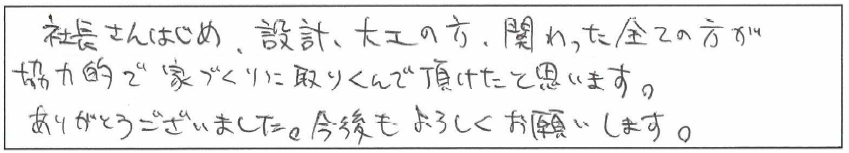 社長さんはじめ、設計、大工の方、関わった全ての方が
協力的で家づくりに取りくんで頂けたと思います。
ありがとうございました。今後もよろしくお願いします。